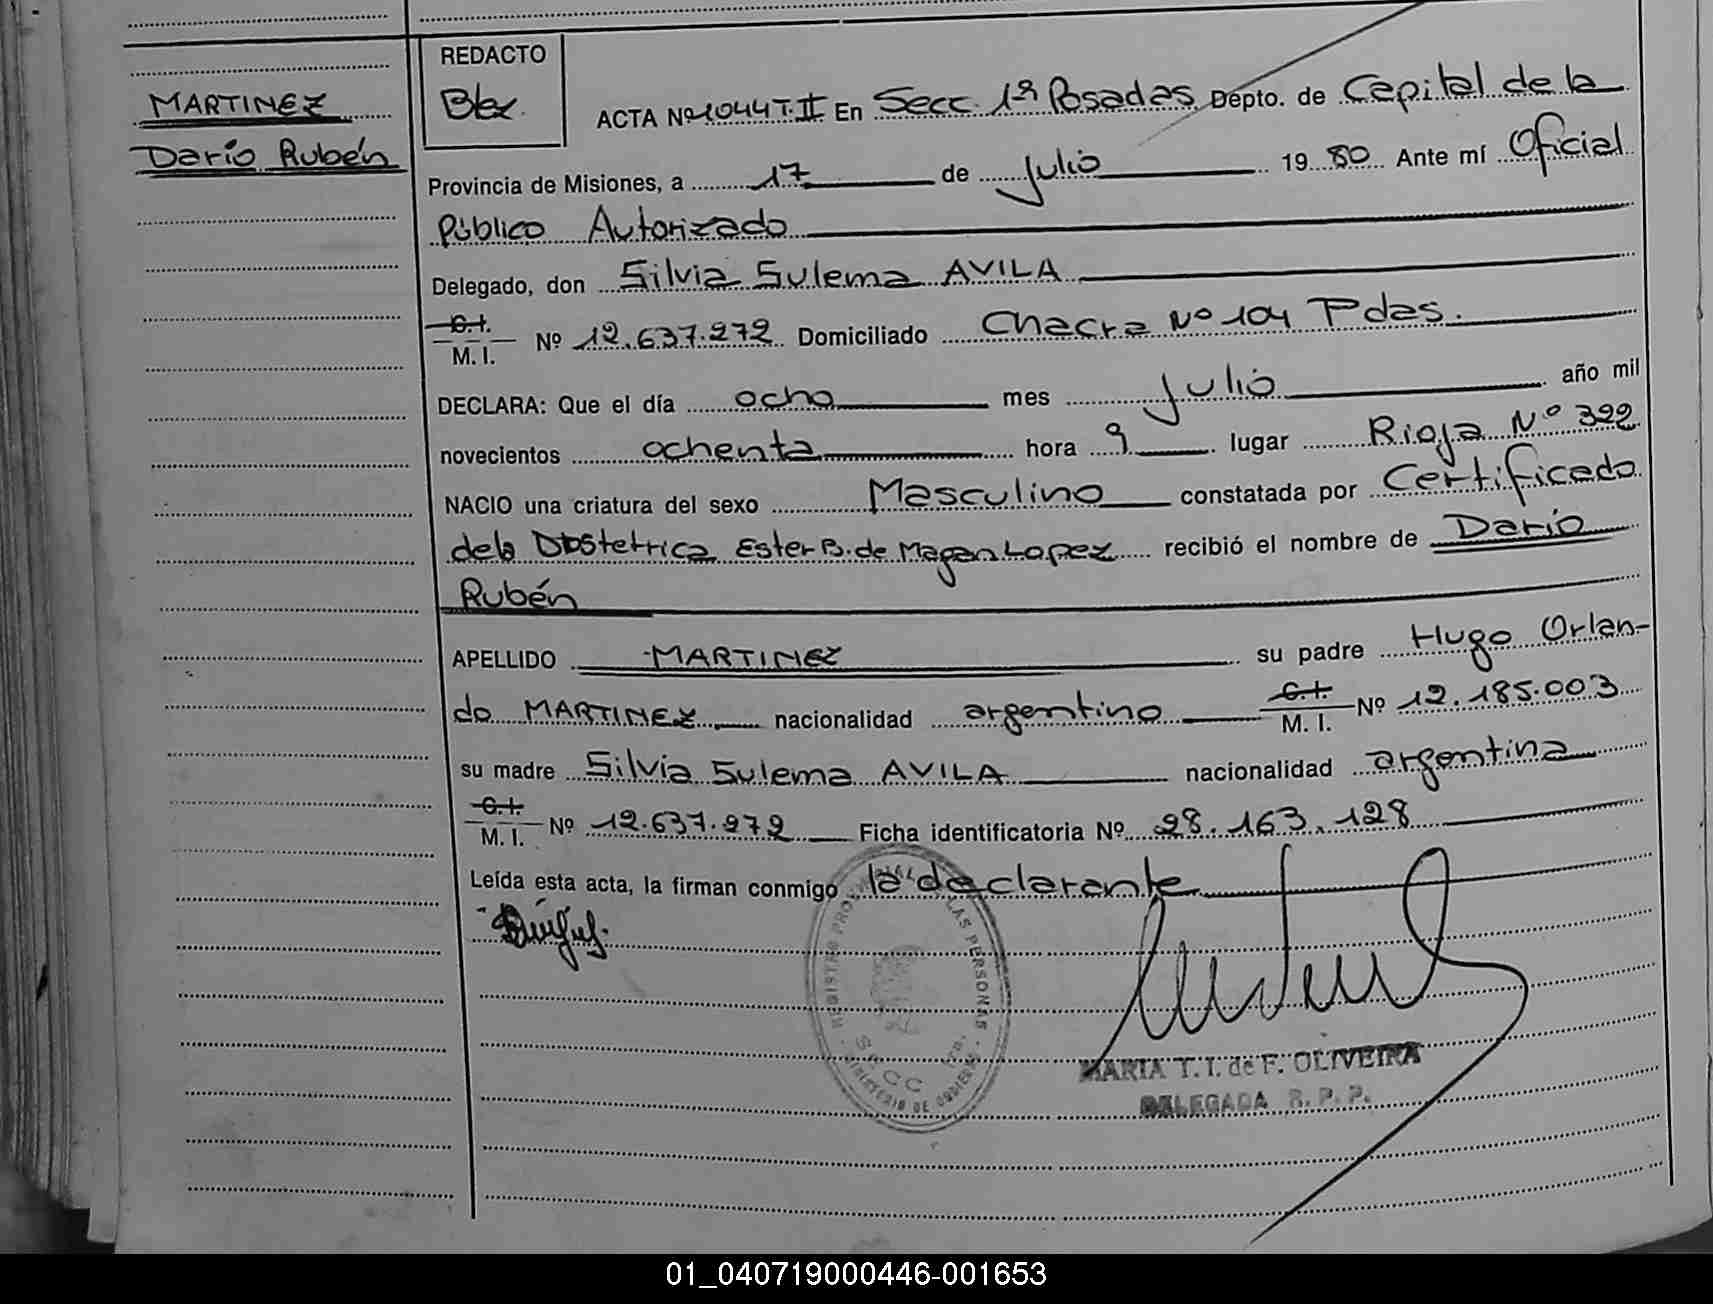 MARTINEZ
Darío Rubén
REDACTO
ACTA Nº 1044 T. II En Secc. 1ª Posadas Depto. de Capital de la
Provincia de Misiones, a 17 de Julio 19 80 Ante mí Oficial
Público Autorizado
Delegado, don Silvia Sulema AVILA
C. I.
M. I. Nº 12.637.272 Domiciliado Chacra Nº 104 Pdas.
DECLARA: Que el día ocho mes Julio año mil
novecientos ochenta hora 9 lugar Rioja Nº 322
NACIO una criatura del sexo Masculino constatada por Certificado
de la Obstetrica Ester B. de Magan Lopez recibió el nombre de Darío
Rubén
APELLIDO MARTINEZ su padre Hugo Orlan-
do MARTINEZ nacionalidad argentino C. I. M. I. Nº 12.185.003
su madre Silvia Sulema AVILA nacionalidad argentina
C. I.
M. I. Nº 12.637.272 Ficha identificatoria Nº 28.163.128
Leída esta acta, la firman conmigo la declarante
REGISTRO PROVINCIAL DE LAS PERSONAS
SECC
MINISTERIO DE GOBIERNO
MARIA T. I. de F. OLIVEIRA
DELEGADA R. P. P.
01_040719000446-001653